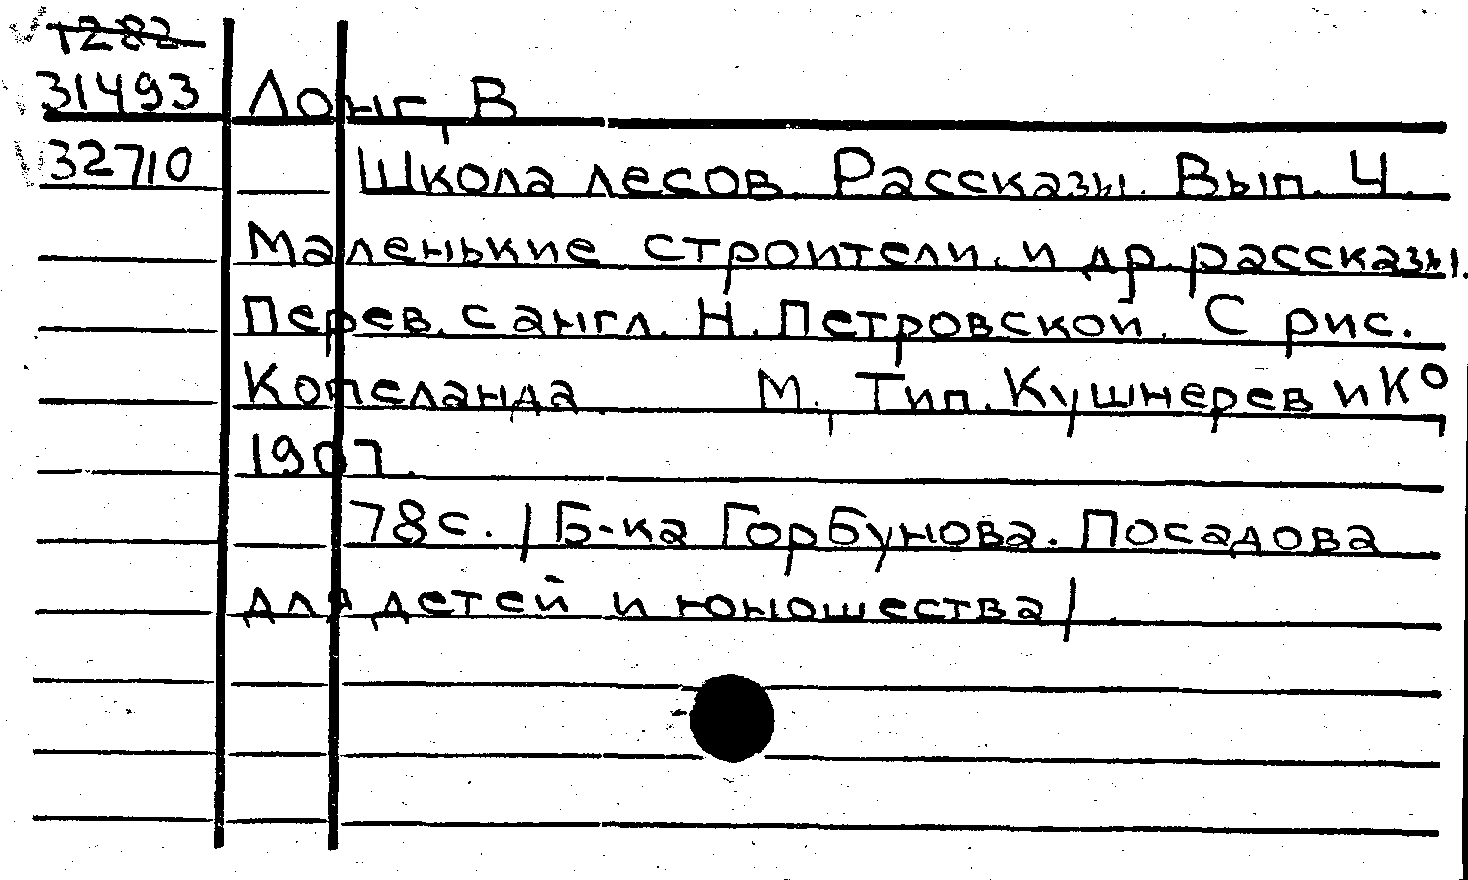 1282
31493 Лонг, В
32710 Школа лесов. Рассказы. Вып. 4.
Маленькие строители. и др. рассказы.
Перев. с англ. Н. Петровской. С рис.
Копеланда М., Тип. Кушнерев и К⁰,
1907.
78с. /Б-ка Горбунова. Посадова
для детей и юношества/.